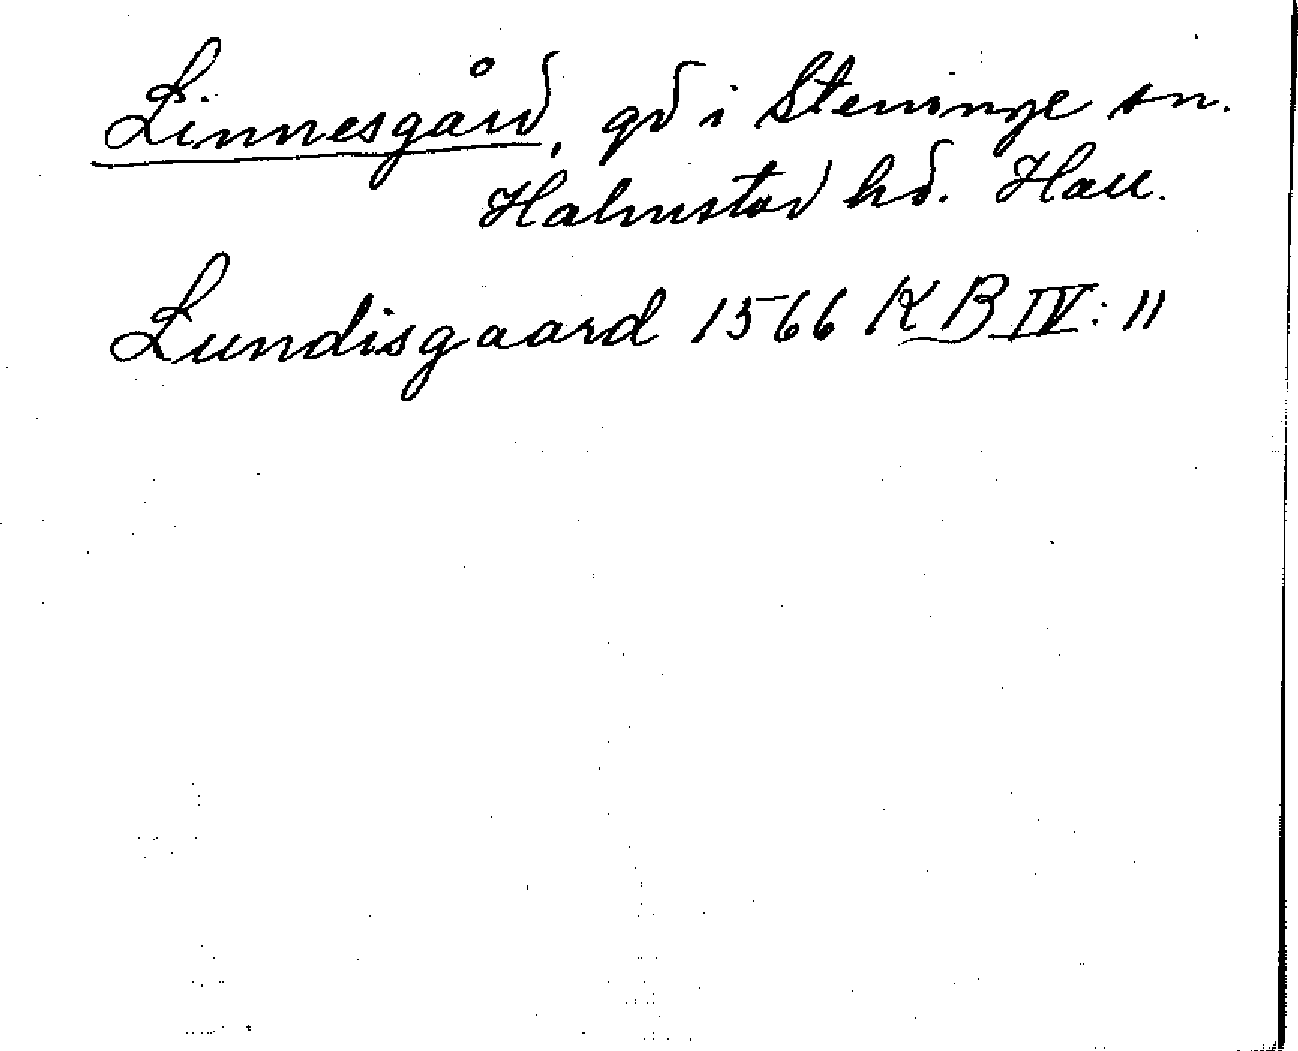 Linnesgård, gd i Steninge sn.
Halmstad hd. Hall.
Lundisgaard 1566 KB IV: 11